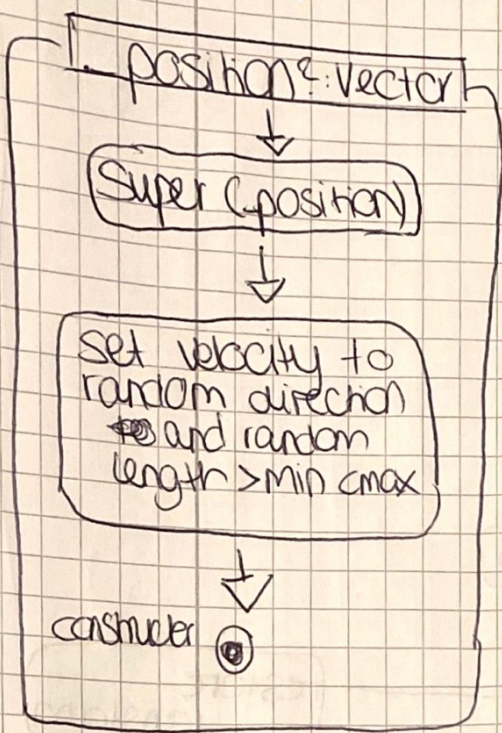 _position?: vector
Super (_position)
set velocity to
random direction
and random
length > min < max
constructer